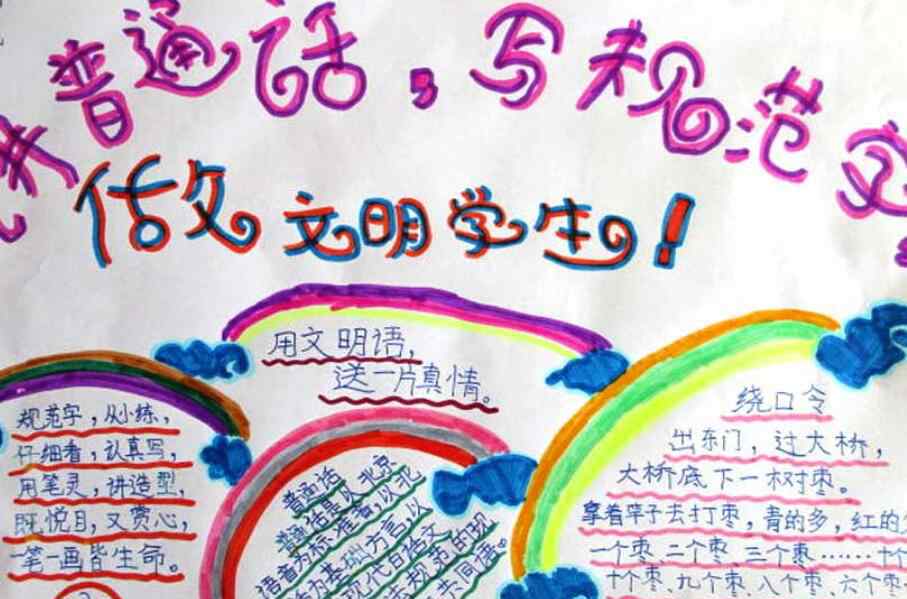 讲普通话,写规范字
做文明学生!
用文明语,
送一片真情。
规范字,从小练,
仔细看,认真写,
用笔灵,讲造型,
既悦目,又赏心,
一笔一画皆生命。
普通话
普通话是以北京
语音为标准音,以北
话为基础方言,以
现代白话文
法规范的现
共同语。
绕口令
出东门,过大桥,
大桥底下一树枣。
拿着竿子去打枣,青的多,红的少
一个枣、二个枣、三个枣……十个
十个枣、九个枣、八个枣、六个枣